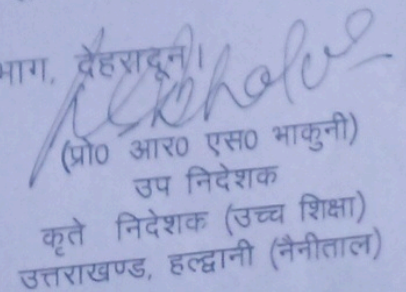 भाग, देहरादून।
(प्रो० आर० एस० भाकुनी)
उप निदेशक
कृते निदेशक (उच्च शिक्षा)
उत्तराखण्ड, हल्द्वानी (नैनीताल)